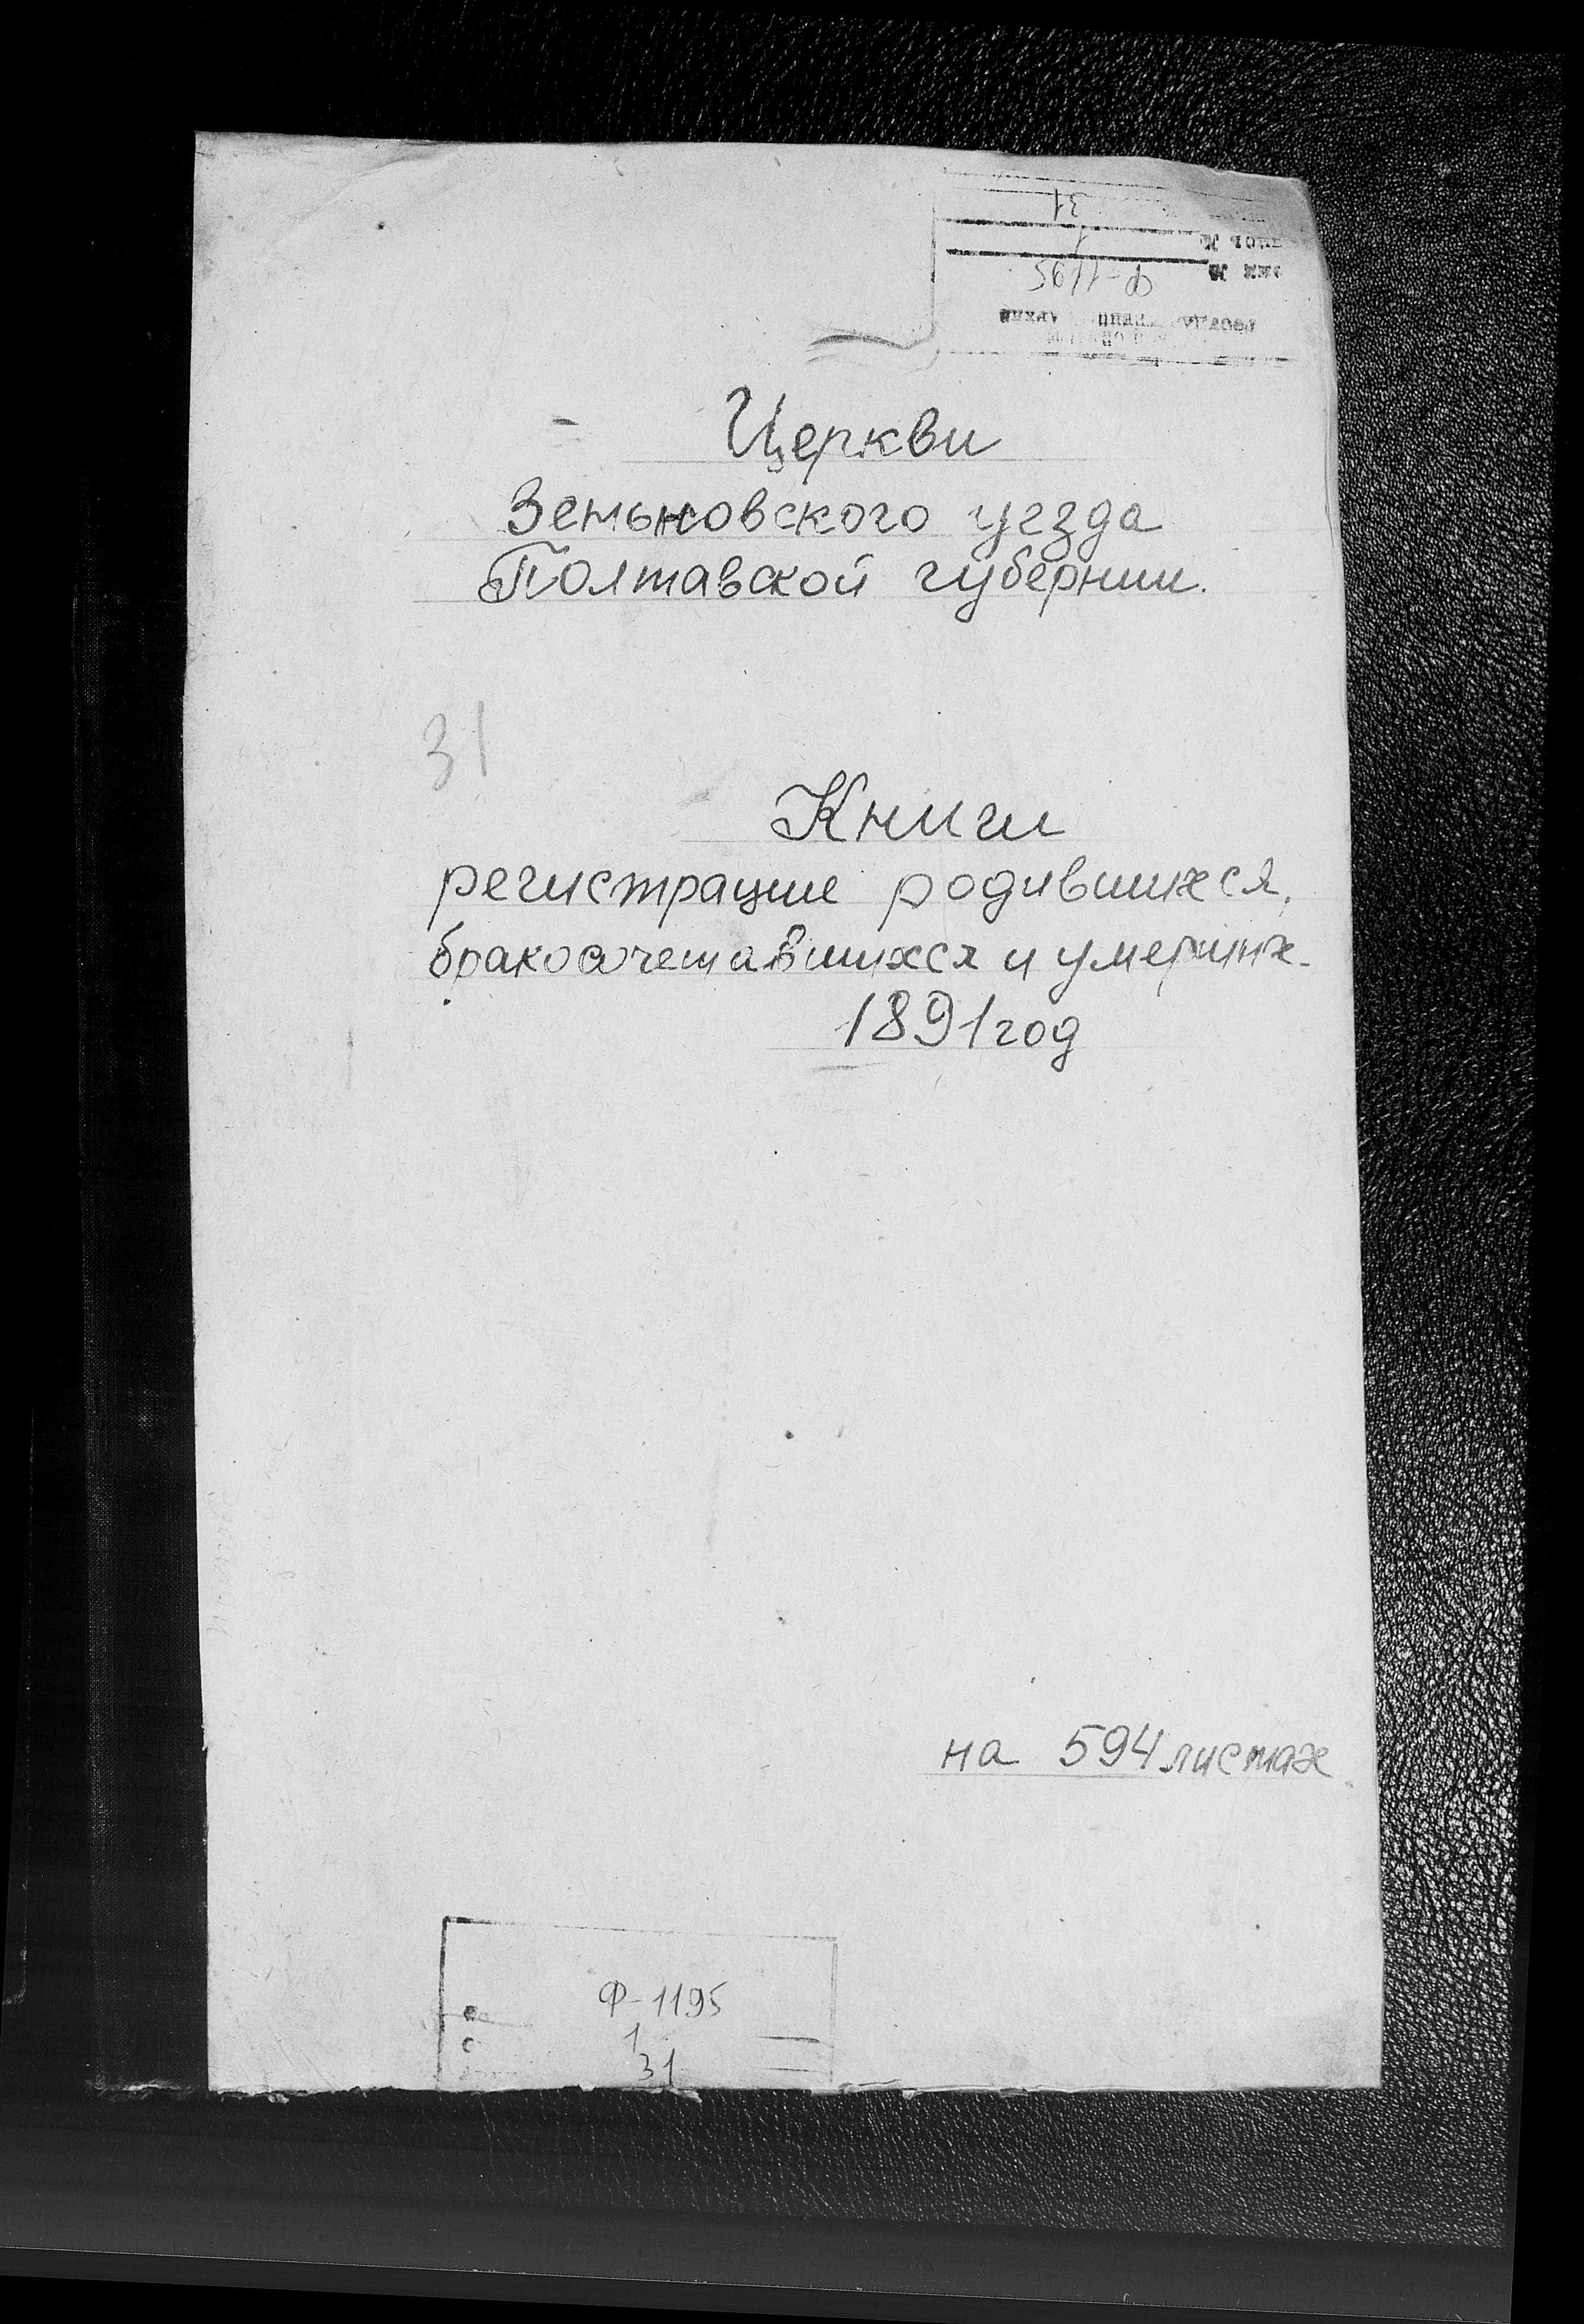 31
1
Ф-1195
Церкви
Зеньковского уезда
Полтавской губернии.
31
Книги
регистрации родившихся,
бракосочетавшихся и умерших.
1891 год
на 594 листах.
Ф-1195
1
31